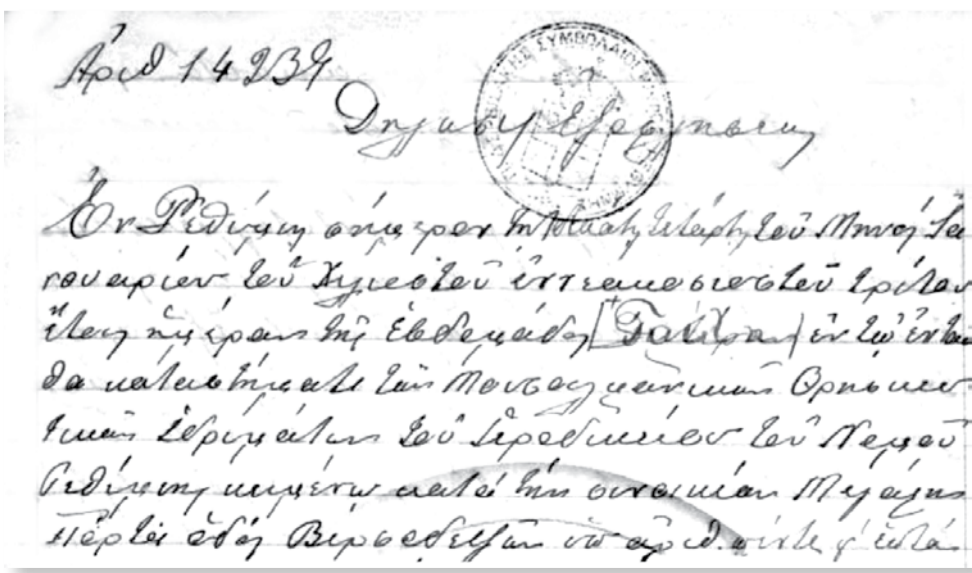 Ἀριθ 14239
Δήλωσις ἐξοφλήσεως
ΣΥΜΒΟΛΑΙΟΓΡ
Ἐν Ῥεθύμνῃ σήμερον τῇ τετάρτῃ τοῦ Μηνὸς Ἰα
νουαρίου τοῦ χιλιοστοῦ ἐννεακοσιοστοῦ τρίτου
ἔτους ἡμέραν τῆς ἑβδομάδος ἐν τῷ ἐνταῦ
θα καταστήματι τῶν Μουσουλμανικῶν Θρησκευ
τικῶν Ἱδρυμάτων τοῦ Ἱεροδικείου τοῦ Νομοῦ
Ρεθύμνης κειμένῳ κατὰ τὴν συνοικίαν Μεγάλης
Πόρτας ὁδὸς ὑπ' ἀριθ. πέντε ἑπτὰ